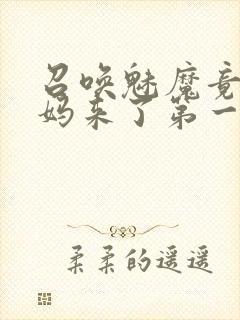 召唤魅魔竟
妈来了第一
柔柔的遥遥